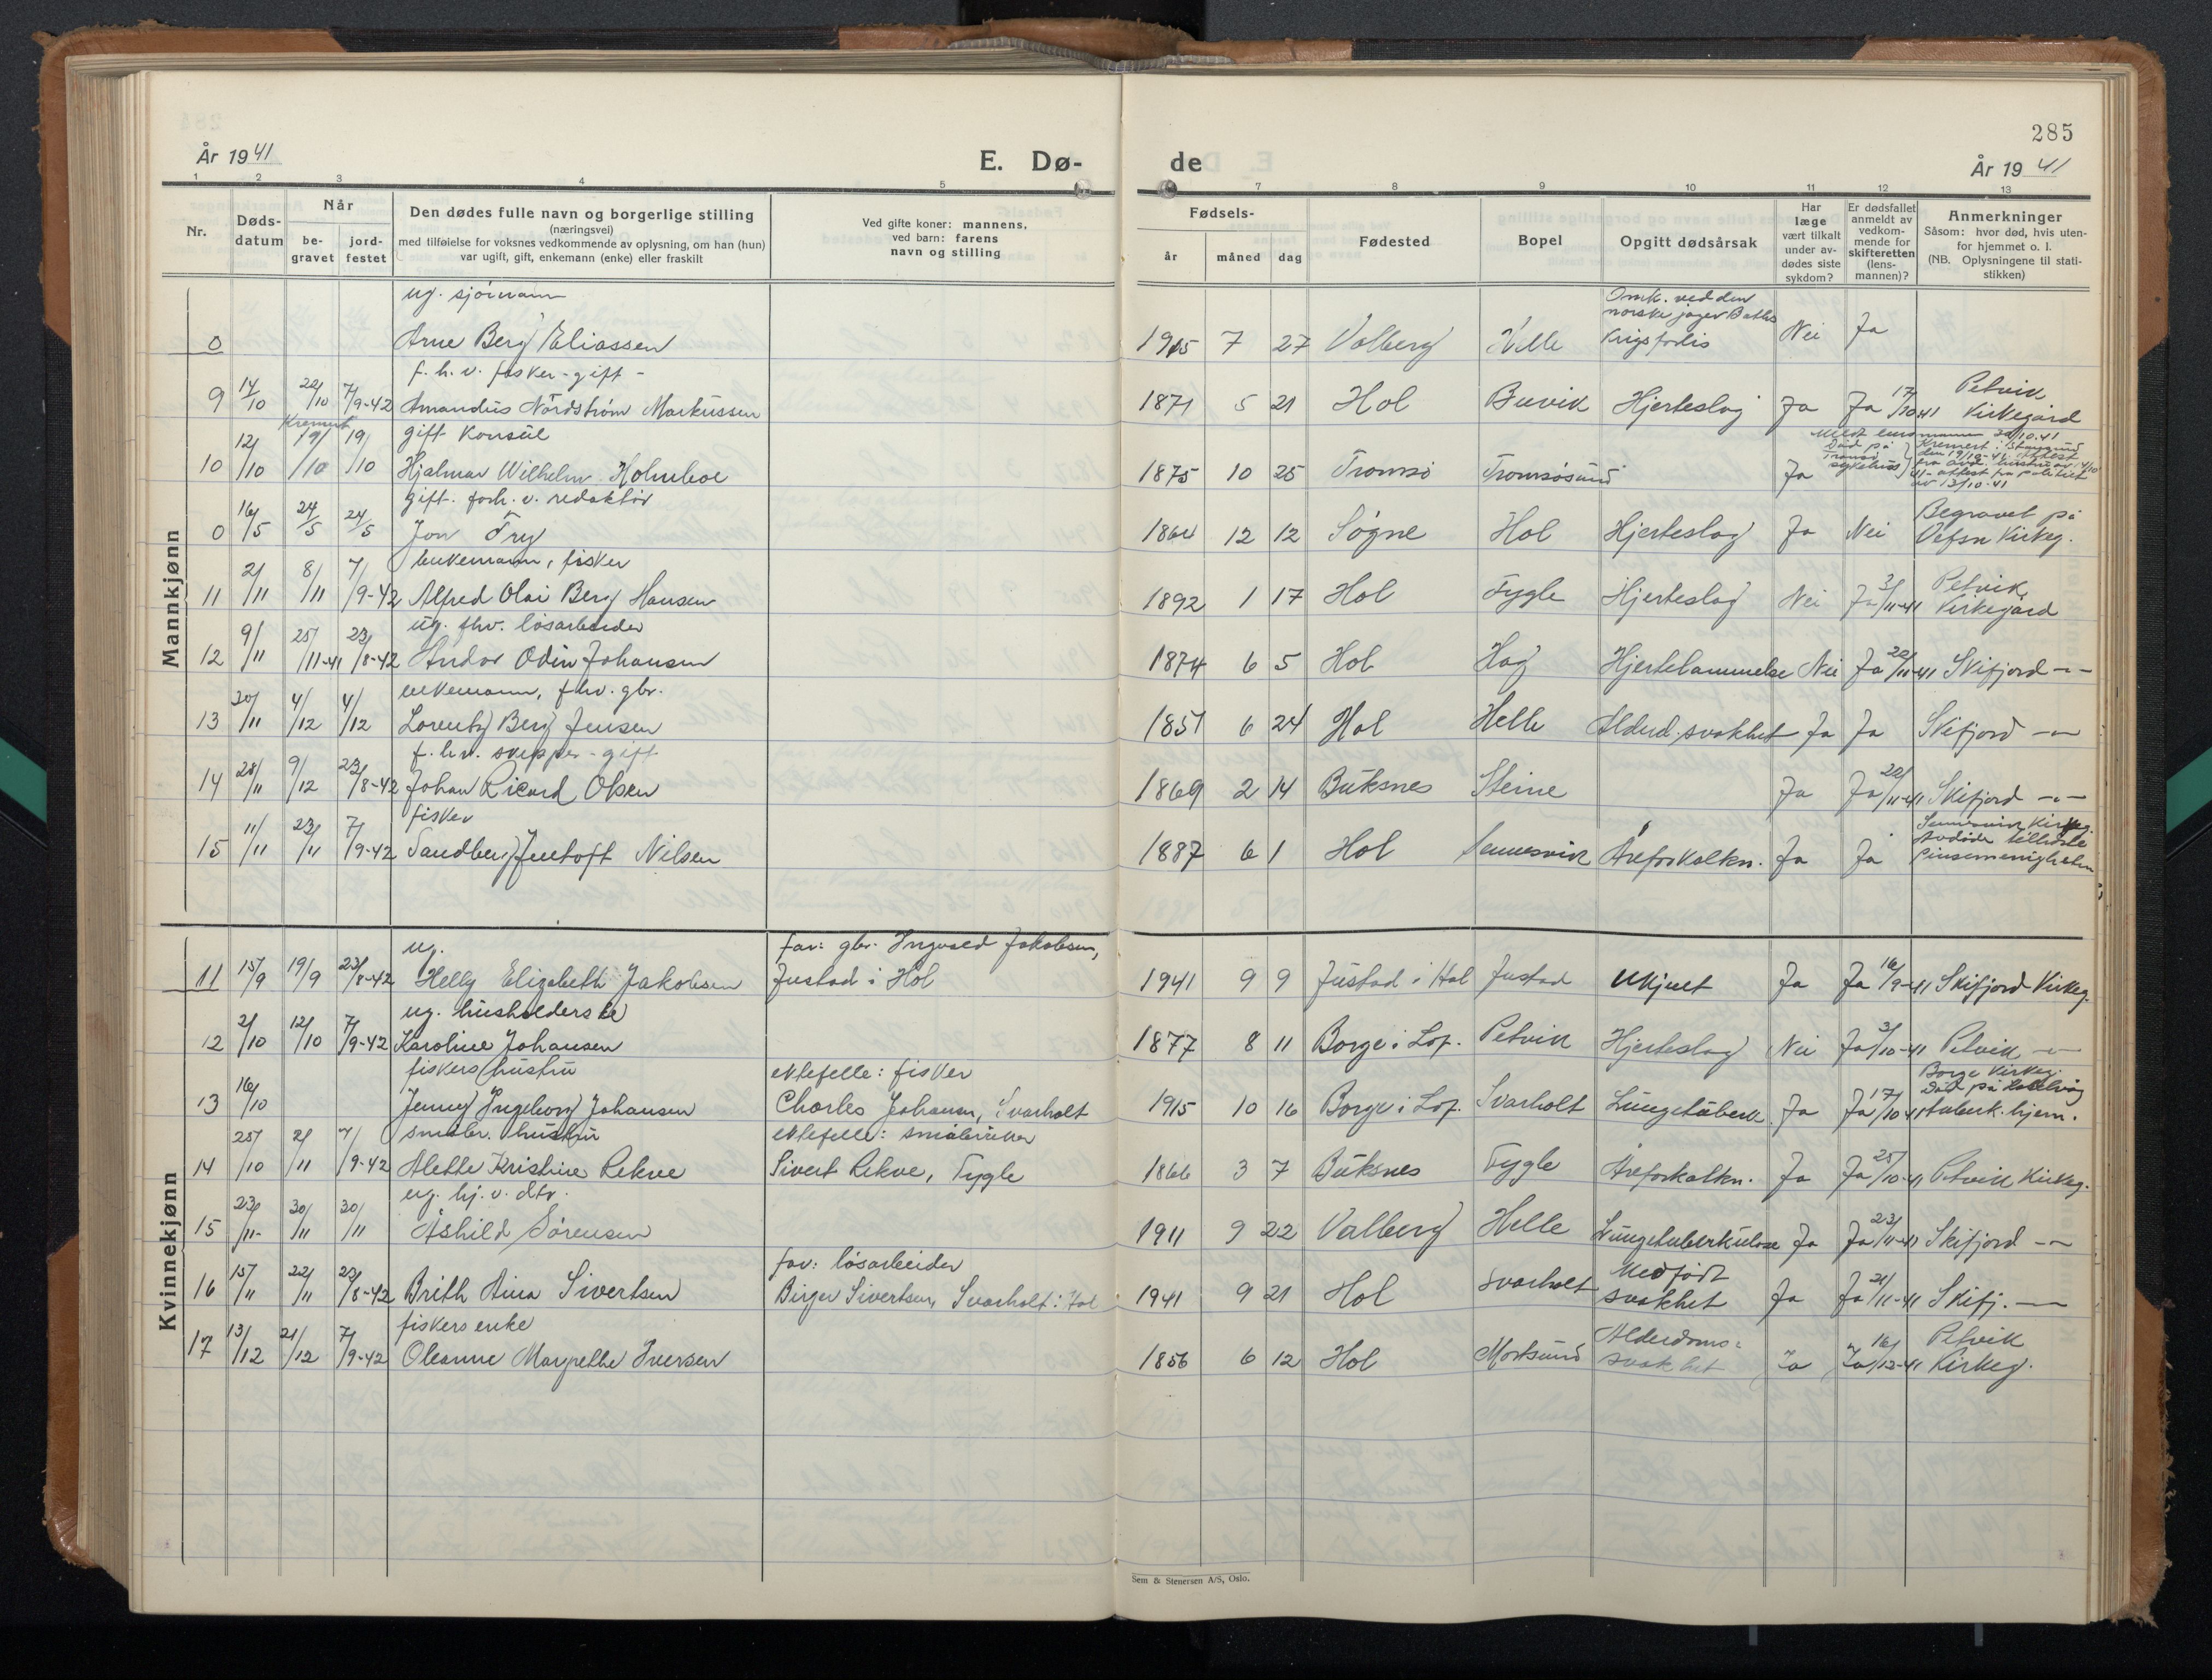 285
År 1941
E. Dø-
de
År 1941
1 2 3 4 5 7 8 9 10 11 12 13
Nr.
Døds-
datum
Når
be-
gravet
jord-
festet
Den dødes fulle navn og borgerlige stilling
(næringsvei)
med tilføielse for voksnes vedkommende av oplysning, om han (hun)
var ugift, gift, enkemann (enke) eller fraskilt
Ved gifte koner: mannens,
ved barn: farens
navn og stilling
Fødsels-
år
måned
dag
Fødested
Bopel
Opgitt dødsårsak
Har
læge
vært tilkalt
under av-
dødes siste
sykdom?
Er dødsfallet
anmeldt av
vedkom-
mende for
skifteretten
(lens-
mannen)?
Anmerkninger
Såsom: hvor død, hvis uten-
for hjemmet o. l.
(NB. Oplysningene til stati-
stikken)
Mannkjønn
ug. sjømann
Omk. ved den
norske jager
0 Arne Berg Eliassen 1915 7 27 Valberg Helle krigsforlis Nei Ja
f. h. v. fisker - gift -
9 14/10 22/10 7/9-42 Amandus Nordstrøm Markussen 1871 5 21 Hol Buvik Hjerteslag Ja Ja 17/10 41 Petvik
Kirkegård
Kremert gift Konsul
10 12/10 19/10 19/10 Hjalmar Wilhelm Holmboe 1875 10 25 Tromsø Tromsøsund Ja
Død på
Tromsø
sykehus
av 13/10-41
gift. forh. v. redaktør
0 16/5 24/5 24/5 Jon Try 1864 12 12 Søgne Hol Hjerteslag Ja Nei Begravet på
Vefsn Kirkeg.
enkemann, fisker
11 2/11 8/11 7/9-42 Alfred Olai Berg Hansen 1892 1 17 Hol Fygle Hjerteslag Nei Ja 3/11-41 Petvik
Kirkegård
ug. fhv. løsarbeider
12 9/11 25/11-41 23/8-42 Andor Odin Johansen 1874 6 5 Hol Hag Hjertelammelse Nei Ja 20/11-41 Skifjord -"-
enkemann, fhv. gbr.
13 30/11 4/12 4/12 Lorentz Berg Jensen 1851 6 24 Hol Helle Alderd. svakhet Ja Ja Skifjord -"-
f. h. v. skipper - gift
14 28/11 9/12 23/8-42 Johan Ricard Olsen 1869 2 14 Buksnes Steine Ja Ja 20/11-41 Skifjord -"-
fisker
15 11/11 23/11 7/9-42 Sandberg Jentoft Nilsen 1887 6 1 Hol Sennesvik Åreforkalkn. Ja Ja Sennesvik Kirkeg.
Avdøde tilhørte
Pinsemenigheten
Kvinnekjønn
ug. far: gbr. Ingvald Jakobsen,
11 15/9 19/9 23/8-42 Helly Elizabeth Jakobsen Justad i Hol 1941 9 9 Justad i Hol Justad Ukjent Ja Ja 16/9-41 Skifjord Kirkeg.
ug. husholderske
12 2/10 12/10 7/9-42 Karoline Johansen 1877 8 11 Borge i Lof. Petvik Hjerteslag Nei Ja 3/10-41 Petvik -"-
fiskers hustru ektefelle: fisker Borge Kirkeg.
Død på
13 16/10 Jenny Ingeborg Johansen Charles Johansen, Svarholt 1915 10 16 Borge i Lof. Svarholt Lungetuberk. Ja Ja 17/10-41 tuberk. hjem.
småbr. hustru ektefelle: småbruker
14 25/10 2/11 7/9-42 Alette Kristine Rekve Sivert Rekve, Fygle 1866 3 7 Buksnes Fygle Åreforkalkn. Ja Ja 25/10-41 Petvik Kirkeg.
ug. hj. v. dtr.
15 23/11- 30/11 30/11 Åshild Sørensen 1911 9 22 Valberg Helle Lungetuberkulose Ja Ja 23/11-41 Skifjord -"-
far: løsarbeider Medfødt
16 15/11 22/11 23/8-42 Brith Aina Sivertsen Birger Sivertsen, Svarholt i Hol 1941 9 21 Hol Svarholt svakhet Ja Ja 21/11-41 Skifj. -"-
fiskers enke Alderdoms-
17 13/12 21/12 7/9-42 Oleanne Margrethe Iversen 1856 6 12 Hol Mortsund svakhet Ja Ja 16/12-41 Petvik
Kirkeg.
Sem & Stenersen A/S, Oslo.